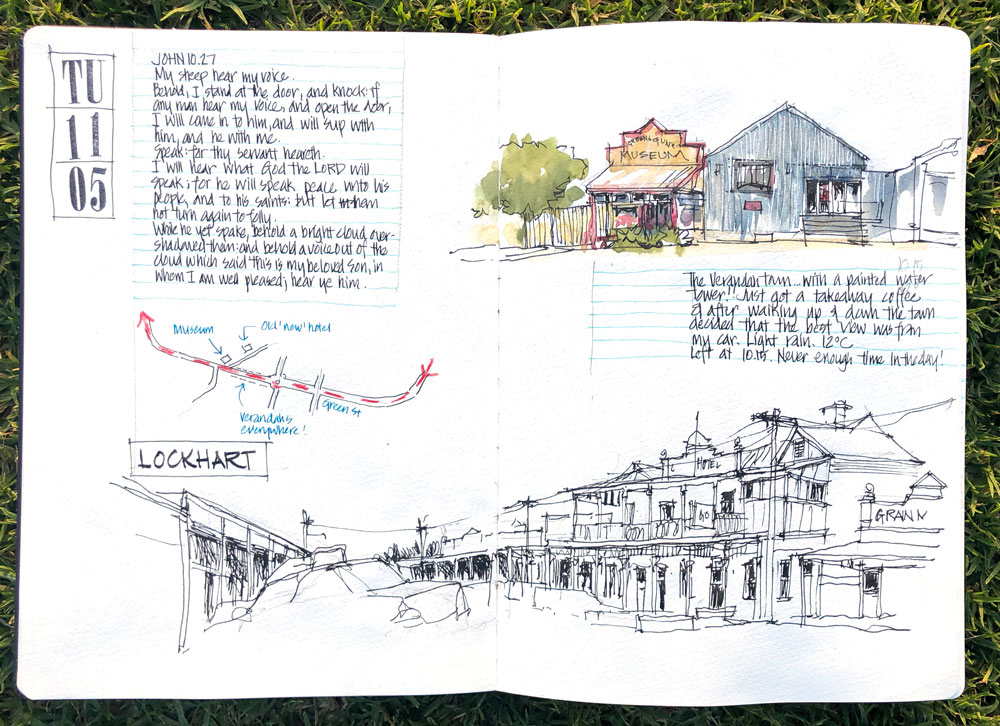 TU
11
05
JOHN 10.27
My sheep hear my voice.
Behold, I stand at the door, and knock: if
any man hear my voice, and open the door,
I will come in to him, and will sup with
him, and he with me.
Speak: for thy servant heareth.
I will hear what God the LORD will
speak: for he will speak peace unto his
people, and to his saints: but let them
not turn again to folly.
While he yet spake, behold a bright cloud over-
shadowed them: and behold a voice out of the
cloud which said this is my beloved Son, in
whom I am well pleased; hear ye him.
Museum
Old 'new' hotel
Verandahs
everywhere!
Green St
LOCKHART
MUSEUM
The Verandah Town... with a painted water
tower! Just got a takeaway coffee
& after walking up & down the town
decided that the best view was from
my car. Light rain. 12°C
Left at 10.15. Never enough time in the day!
HOTEL
GRAIN